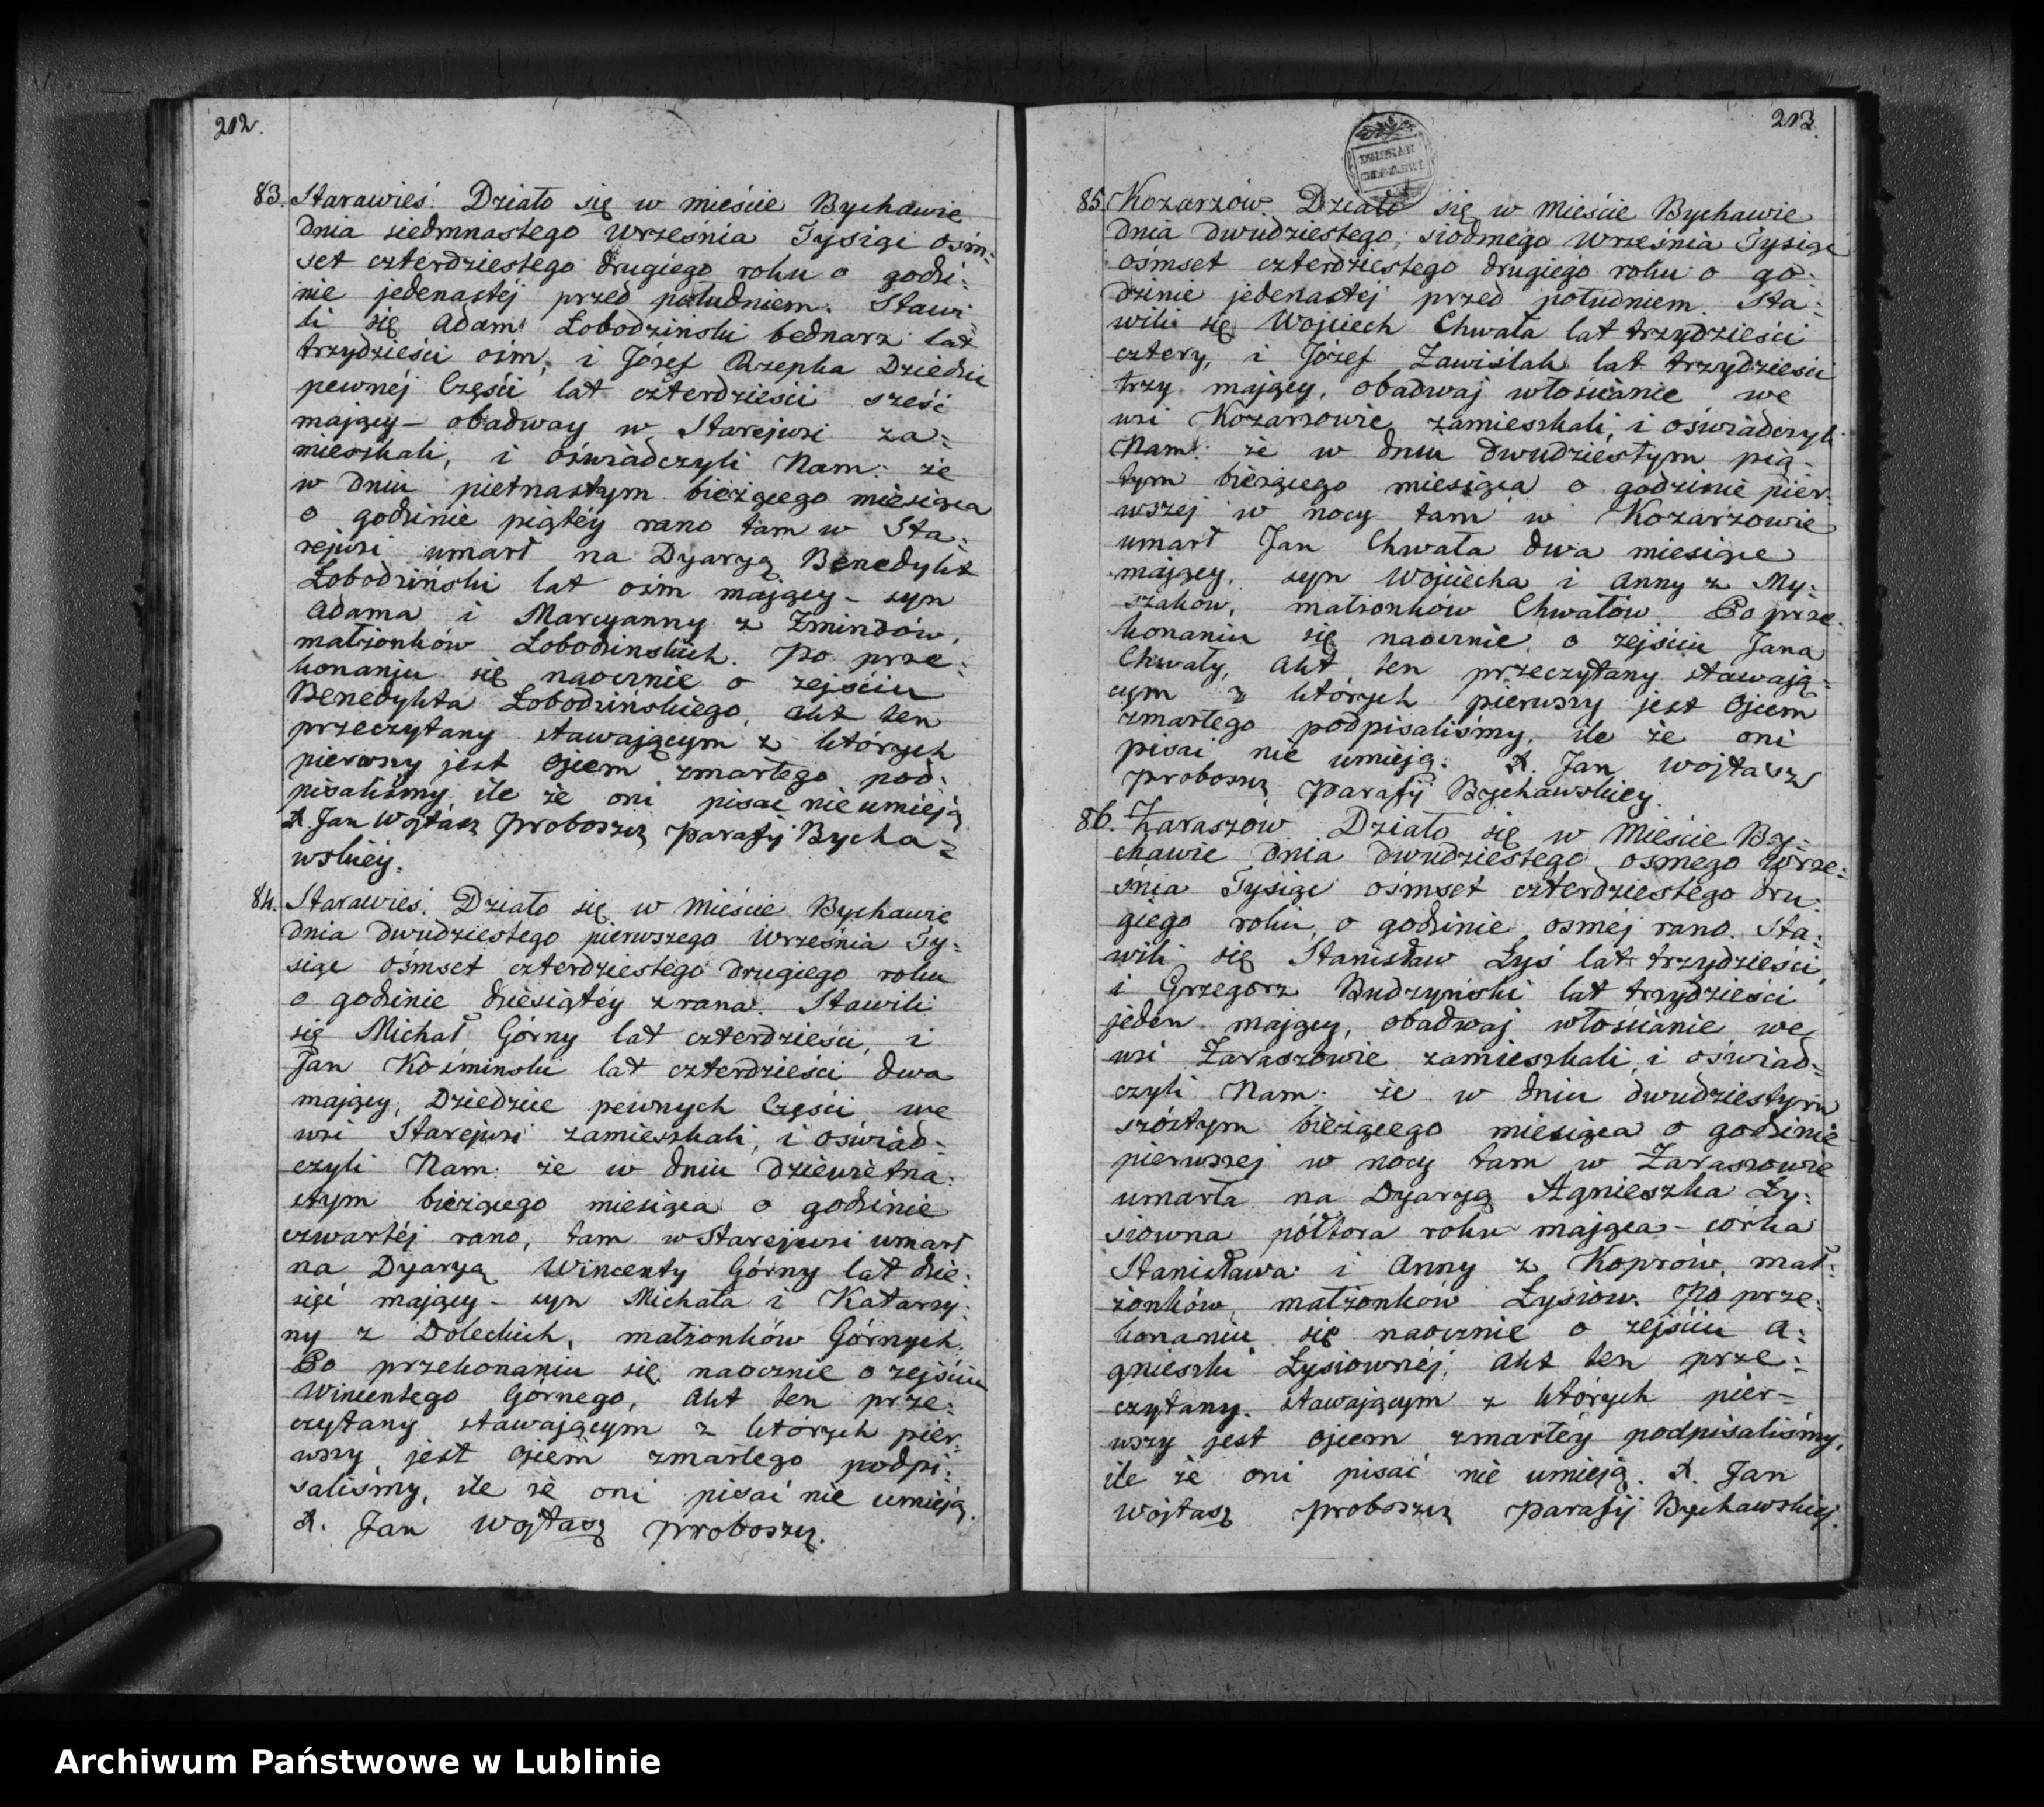 212.
83. Starawieś. Działo się w mieście Bychawie
dnia siedmnastego Wrzesnia Tysiąc ośm=
set czterdziestego drugiego roku o godzi=
nie jedenastéj przed południem. Stawi=
li się Adam Łobodziński bednarz lat
trzydzieści ośm, i Józef Rzepka Dziedzic
pewnéj Części lat czterdzieści sześć
mający – obadway w Starejwsi za=
mieszkali, i oświadczyli Nam: że
w dniu pietnastym bieżącego miesiąca
o godzinie piątéy rano tam w Sta=
rejwsi umarł na Dyaryą Benedykt
Łobodziński lat ośm mający – syn
Adama i Marcyanny z Żmindów,
małżonków Łobodzinskich. Po prze=
konaniu się naocznie o zejściu
Benedykta Łobodzińskiego, Akt ten
przeczytany stawającym z których
pierwszy jest Ojcem zmarłego pod=
pisaliśmy ile że oni pisac nie umieją
X. Jan Wojtasz Proboszcz Parafij Bycha=
wskiéy.
84. Starawieś. Działo się w Mieście Bychawie
dnia dwudziestego pierwszego Września Ty=
siąc ośmset czterdziestego drugiego roku
o godzinie dziesiątéy z rana. Stawili
się Michał Górny lat czterdzieści, i
Jan Koźminski lat czterdzieści dwa
mający, Dziedzice pewnych Części we
wsi Starejwsi zamieszkali, i oświad=
czyli Nam: że w dniu dziewietna=
stym bieżącego miesiąca o godzinie
czwartéj rano, tam w Starejwsi umarł
na Dyaryą Wincenty Górny lat dzie=
sięć mający – syn Michała i Katarzy=
ny z Doleckich, małżonków Górnych.
Po przekonaniu się naocznie o zejściu
Wincentego Górnego, Akt ten prze=
czytany stawającym z których pier=
wszy jest Ojcem zmarłego podpi=
saliśmy, ile że oni pisać nie umieją.
X. Jan Wojtasz Proboszcz.
213.
85. Kozarzów. Działo się w Mieście Bychawie
dnia dwudziestego, siódmego Września Tysiąc
ośmset czterdziestego drugiego roku o go=
dzinie jedenastéj przed południem. Sta=
wili się Wojciech Chwała lat trzydzieści
cztery, i Józef Zawiślak lat trzydzieści
trzy mający, obadwaj włościanie we
wsi Kozarzowie zamieszkali, i oświadczyli
Nam: że w dniu dwudziestym pią=
tym bieżącego miesiąca o godzinie pier=
wszej w nocy tam w Kozarzowie
umarł Jan Chwała dwa miesiące
mający, syn Wojciecha i Anny z My=
szaków, małżonków Chwałów. Po prze=
konaniu się naocznie o zejściu Jana
Chwały, Akt ten przeczytany stawają=
cym z których pierwszy jest Ojcem
zmarłego podpisaliśmy, ile że oni
pisać nie umieją. X. Jan Wojtasz
Proboszcz Parafij Bychawskiey.
86. Zaraszow. Działo się w Mieście By=
chawie dnia dwudziestego osmego Wrze=
śnia Tysiąc ośmset czterdziestego dru=
giego roku, o godzinie osméj rano. Sta=
wili się Stanisław Łyś lat trzydzieści,
i Grzegorz Budzyński lat trzydzieści
jeden mający, obadwaj włościanie we
wsi Zaraszowie zamieszkali, i oświad=
czyli Nam: że w dniu dwudziestym
szóstym bieżącego miesiąca o godzinie
pierwszej w nocy tam w Zaraszowie
umarła na Dyaryą Agnieszka Ły=
siowna półtora roku mająca – córka
Stanisława i Anny z Koprów, mał=
żonków, małżonków Łysiów. Po prze=
konaniu się naocznie o zejściu A=
gnieszki Łysiownéj, Akt ten prze=
czytany stawającym z których pier=
wszy jest Ojcem zmarłéy podpisaliśmy,
ile że oni pisać nie umieją. X. Jan
Wojtasz Proboszcz Parafij Bychawskiej.
Archiwum Państwowe w Lublinie